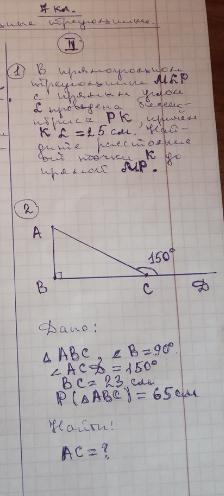 7 кл.
треугольники.
II
1) В прямоугольном
треугольнике MLP
с прямым углом
L проведена биссек-
триса PK, причём
KL = 25 см. Най-
дите расстояние
от точки K до
прямой MP.
2)
A
150°
B
C
D
Дано:
△ ABC, ∠B=90°.
∠ACD = 150°
BC = 23 см
P(△ABC) = 65 см
Найти:
AC = ?